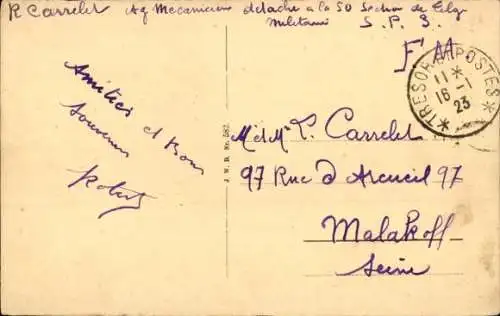 R Carrelet Ag Mecanicien détaché a la 50 Section de Telg
Militaire S. P. 3.
F M
*TRESOR ET POSTES*
11 *
16 -1
23
Amitiés et Bons
Souvenirs
Robert
J. W. B. No. 582.
M et Me L. Carrelet
97 Rue d Arcueil 97
Malakoff
Seine